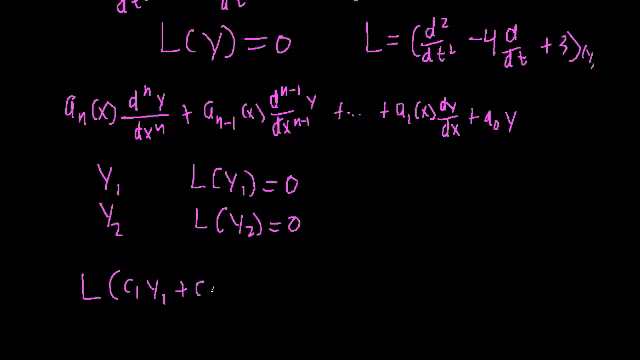 L(y) = 0 L = (d²/dt² - 4 d/dt + 3)(y)
aₙ(x) dⁿy/dxⁿ + aₙ₋₁(x) dⁿ⁻¹y/dxⁿ⁻¹ + ... + a₁(x) dy/dx + a₀ y
y₁ L(y₁) = 0
y₂ L(y₂) = 0
L(c₁y₁ + c